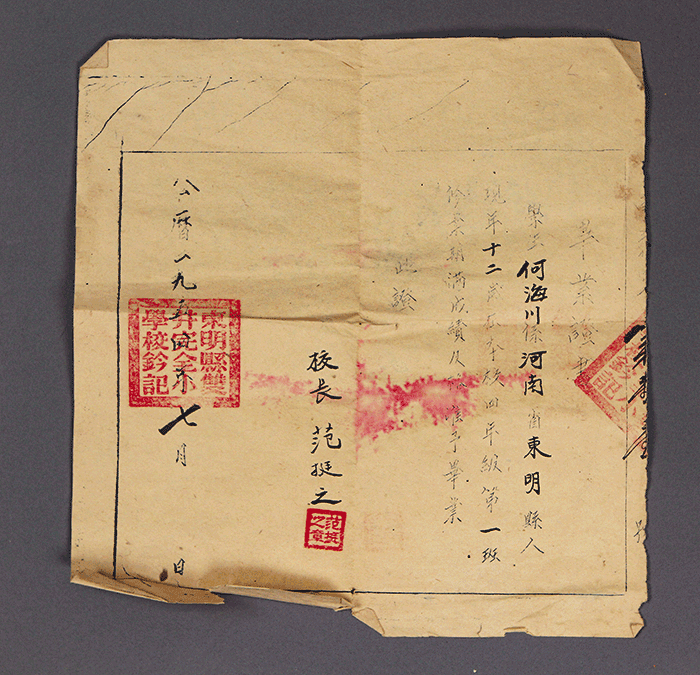 畢業證書
學生何海川係河南省東明縣人
現年十二歲在本校四年級第一班
修業期滿成績及格准予畢業
此證
校長 范挺之
范挺之章
公曆一九五四年七月 日
東明縣雙井完全小學校鈐記
號